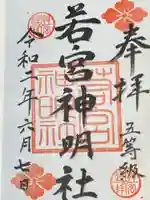 奉拝
五等級
若宮神明社
令和二年六月七日